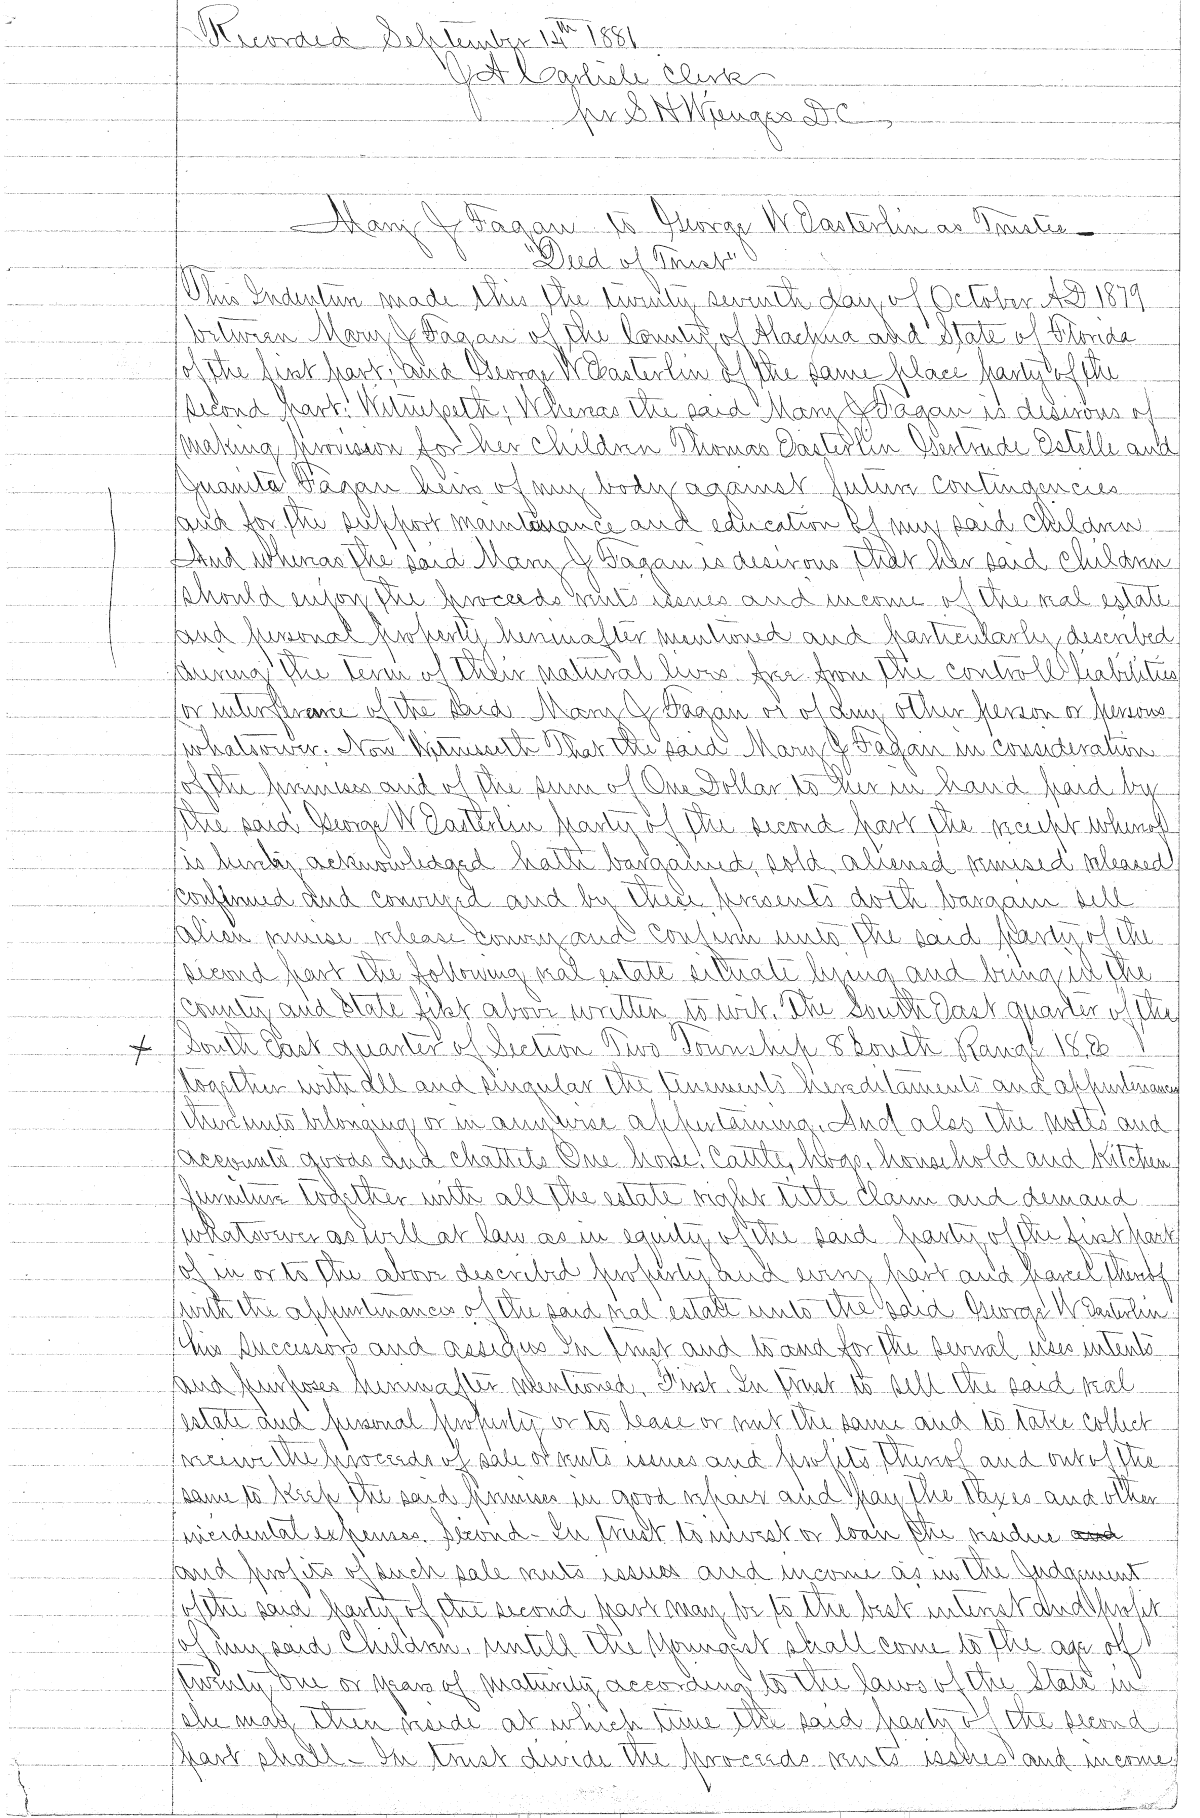 Recorded September 14th 1881
J A Carlisle Clerk
pr S H Wienges D.C.
Mary J Fagan to George W Easterlin as Trustee
"Deed of Trust"
This Indenture made this the twenty seventh day of October AD 1879
between Mary J Fagan of the County of Alachua and State of Florida
of the first part; and George W Easterlin of the same place party of the
second part: Witnesseth; Whereas the said Mary J Fagan is desirous of
making provision for her children Thomas Easterlin Gertrude Estelle and
Juanita Fagan heirs of my body against future contingencies
and for the support maintenance and education of my said children
And whereas the said Mary J Fagan is desirous that her said children
should enjoy the proceeds rents issues and income of the real estate
and personal property hereinafter mentioned and particularly described
during the term of their natural lives free from the controll liabilities
or interference of the said Mary J Fagan or of any other person or persons
whatsoever. Now Witnesseth That the said Mary J Fagan in consideration
of the premises and of the sum of One Dollar to her in hand paid by
the said George W Easterlin party of the second part the receipt whereof
is hereby acknowledged hath bargained, sold, aliened remised released
confirmed and conveyed and by these presents doth bargain sell
alien remise release convey and confirm unto the said party of the
second part the following real estate situate lying and being in the
county and State first above written to wit. The South East quarter of the
+ South East quarter of Section Two Township 8 South Range 18, E
together with all and singular the tenements hereditaments and appurtenances
thereunto belonging or in anywise appertaining. And also the notts and
accounts goods and chattets One horse. Cattle, hogs, household and Kitchen
furniture together with all the estate right title claim and demand
whatsoever as well at law as in equity of the said party of the first part
of in or to the above described property and every part and parcel thereof
with the appurtinances of the said real estate unto the said George W Easterlin
his successors and assigns In trust and to and for the several uses intents
and purposes hereinafter mentioned. First. In trust to sell the said real
estate and personal property or to lease or rent the same and to take collect
receive the proceeds of sale or rents issues and profits thereof and out of the
same to keep the said premises in good repair and pay the taxes and other
incidental expenses. Second - In trust to invest or loan the residue and
and profits of such sale rents issues and income as in the Judgement
of the said party of the second part may be to the best interest and profit
of my said Children. untill the Youngest shall come to the age of
twenty one or years of maturity according to the laws of the State in
she may then reside at which time the said party of the second
part shall - In trust divide the proceeds rents issues and income